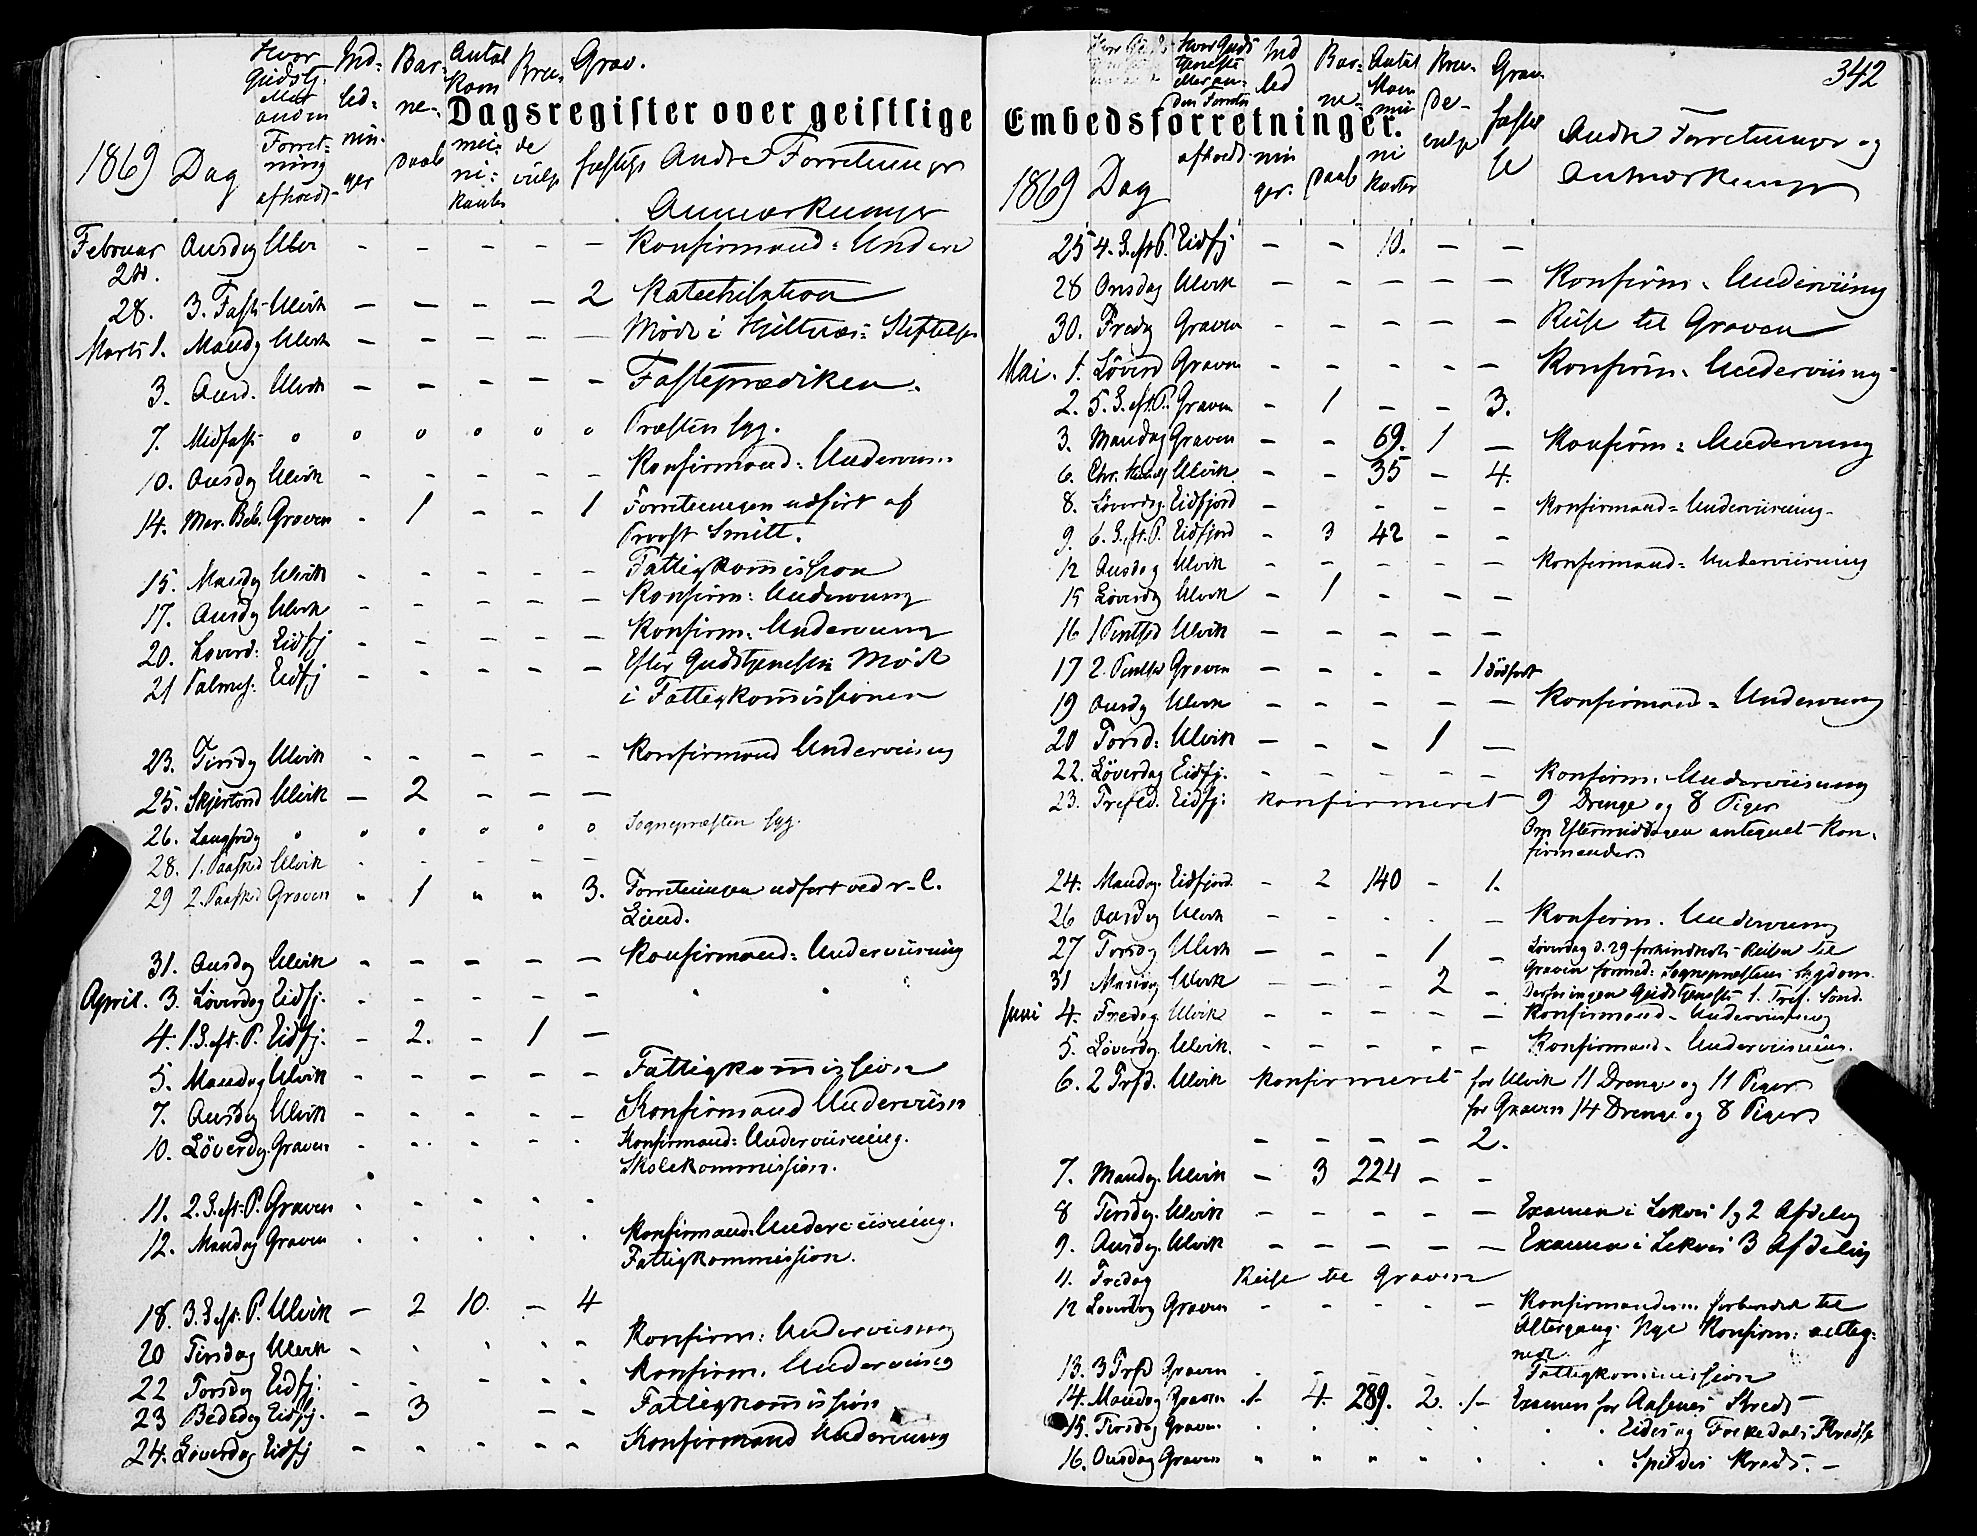 Dagsregister over geistlige
1869 Dag
Hvor Gudstj. eller anden Forretning afholdt
Indledninger
Barnedaab
Antal Kommunikanter
Brudevielse
Gravfæstelse
Andre Forretninger
Anmærkninger
Februar 24. Onsdag Ulvik - - - - - Konfirmand: Underv
28. 3. Faste Ulvik - - - - 2 Katechisation
Marts 1. Mandg Ulvik - - - - - Møde i Hjeltnæs: Stiftelse
3. Onsd. Ulvik - - - - - Fasteprædiken.
7. Midfast o o o o o o Præsten syg.
10. Onsdg Ulvik - - - - - Konfirmand: Underviisn
14. Mar. Beb. Graven - 1 - - 1 Forretningen udført af
Provst Smitt.
15. Mandg Ulvik - - - - - Fattigkommission
17. Onsdg Ulvik - - - - - Konfirm: Undervisning
20. Løverd: Eidfj - - - - - Konfirm: Undervisning
21 Palmes: Eidfj - - - - - Efter Gudstjenesten Møde
i Fattigkommissionen
23. Tirsdg Ulvik - - - - - Konfirmand Underviisng
25. Skjertorsd Ulvik - 2 - - -
26. Langfredg o o o o o o Sognepræsten syg.
28. 1. Paasked Ulvik - - - - -
29 2. Paasked Graven " 1 " " 3. Forretningen udført ved r. C.
Lund.
31. Onsdg Ulvik - - - - - Konfirmand: Underviisning
April. 3. Løverdag Eidfj. - - - - - " " "
4. 1. S. eft. P. Eidfj. - 2. - 1 -
5. Mandag Ulvik - - - - - Fattigkommission
7. Onsdg Ulvik - - - - - Konfirmand Underviisn
10. Løverdg. Graven - - - - - Konfirmand: Underviisning.
Skolekommission.
11. 2. S. eft. P. Graven - - - - -
12. Mandag Graven - - - - - Konfirmand: Underviisning.
Fattigkommission.
18. 3. S. eft. P. Ulvik - 2 10. - 4
20 Tirsdag Ulvik - - - - - Konfirm: Underviisning
22 Torsdg Eidfj: - - - - - Konfirm. Underviisng
23 Bededag Eidfj. - 3 - - Fattigkommission
24. Løverdag Eidfj - - - - - Konfirmand Underviisng
342
Embedsforretninger.
1869 Dag
Hvor Gudstjeneste eller anden Forretn afholdt
Indledninger.
Barnedaab
Antal Kommunikanter
Brudevielse
Gravfæstelse
Andre Forretninger og
Anmærkninger
25 4. S. eft P. Eidfj - - 10. - -
28 Onsdag Ulvik - - - - - Konfirm. Underviisng
30. Fredg Graven - - - - - Reise til Graven
Mai. 1. Løverd Graven - - - - - Konfirm. Underviisng
2. 5. S. eft. P. Graven - 1 - - 3.
3. Mandag Graven - - 69. 1 - Konfirm: Undervisning
6. Chr. Himlf Ulvik. - - 35 - 4.
8. Løverdag. Eidfjord - - - - Konfirmand= Underviisning.
9. 6. S. eft. P. Eidfjord - 3 42 - -
12 Onsdag Ulvik - - - - - Konfirmand= Underviisning
15 Løverdg Ulvik - 1 - - -
16 1 Pintsed Ulvik - - - - -
17 2. Pintsed Graven - - - - 1 dødført
19 Onsdg Ulvik - - - - - Konfirmand= Undervisng
20 Torsd: Ulvik - - - 1 -
22. Løverdag Eidfj. - - - - - Konfirm: Underviisning
23. Trefld. Eidfj: konfirmeret 9 Drenge og 8 Piger
Om Eftermiddagen antegnet Kon-
firmander.
24. Mandag. Eidfjord - 2 140 - 1.
26 Onsdag Ulvik - - - - - Konfirm. Undervisng
27 Torsdg Ulvik - - - 1 - Løverdag d. 29 forhindredes Reisen til
31 Mandag Ulvik - - - 2 - Graven formed: Sognepræstens Sygdom.
Derfor ingen Gudstjeneste 1. Tref. Sønd.
Juni 4. Fredag Ulvik - - - - - Konfirmand= Underviisning
5. Løverdg. Ulvik. - - - - - Konfirmand= Underviisning.
6. 2 Trfd. Ulvik konfirmeret for Ulvik 11 Drenge og 11 Piger
for Graven 14 Drenge og 8 Piger
- - - - 2.
7. Mandag. Ulvik - 3 224 - -
8 Tirsdg. Ulvik - - - - - Examen i Lekves 1 og 2 Afdeling
9. Onsdg. Ulvik - - - - - Examen i Lekves 3 Afdeling
11. Fredag Reise til Graven
12 Løverdag Graven - - - - - Konfirmanderne forberedet til
Altergang. Nye Konfirm: anteg-
nede.
13. 3 Trfd Graven - - - - - Fattigkommission
14. Mandag Graven .1. 4. 289. 2. .1- Examen for Aasenes Kreds -
15. Tirsdag Graven . . . . . . . Eides og Frekedals Kredse
16. Onsdag Graven " " " " . . . Spildes Kreds. -